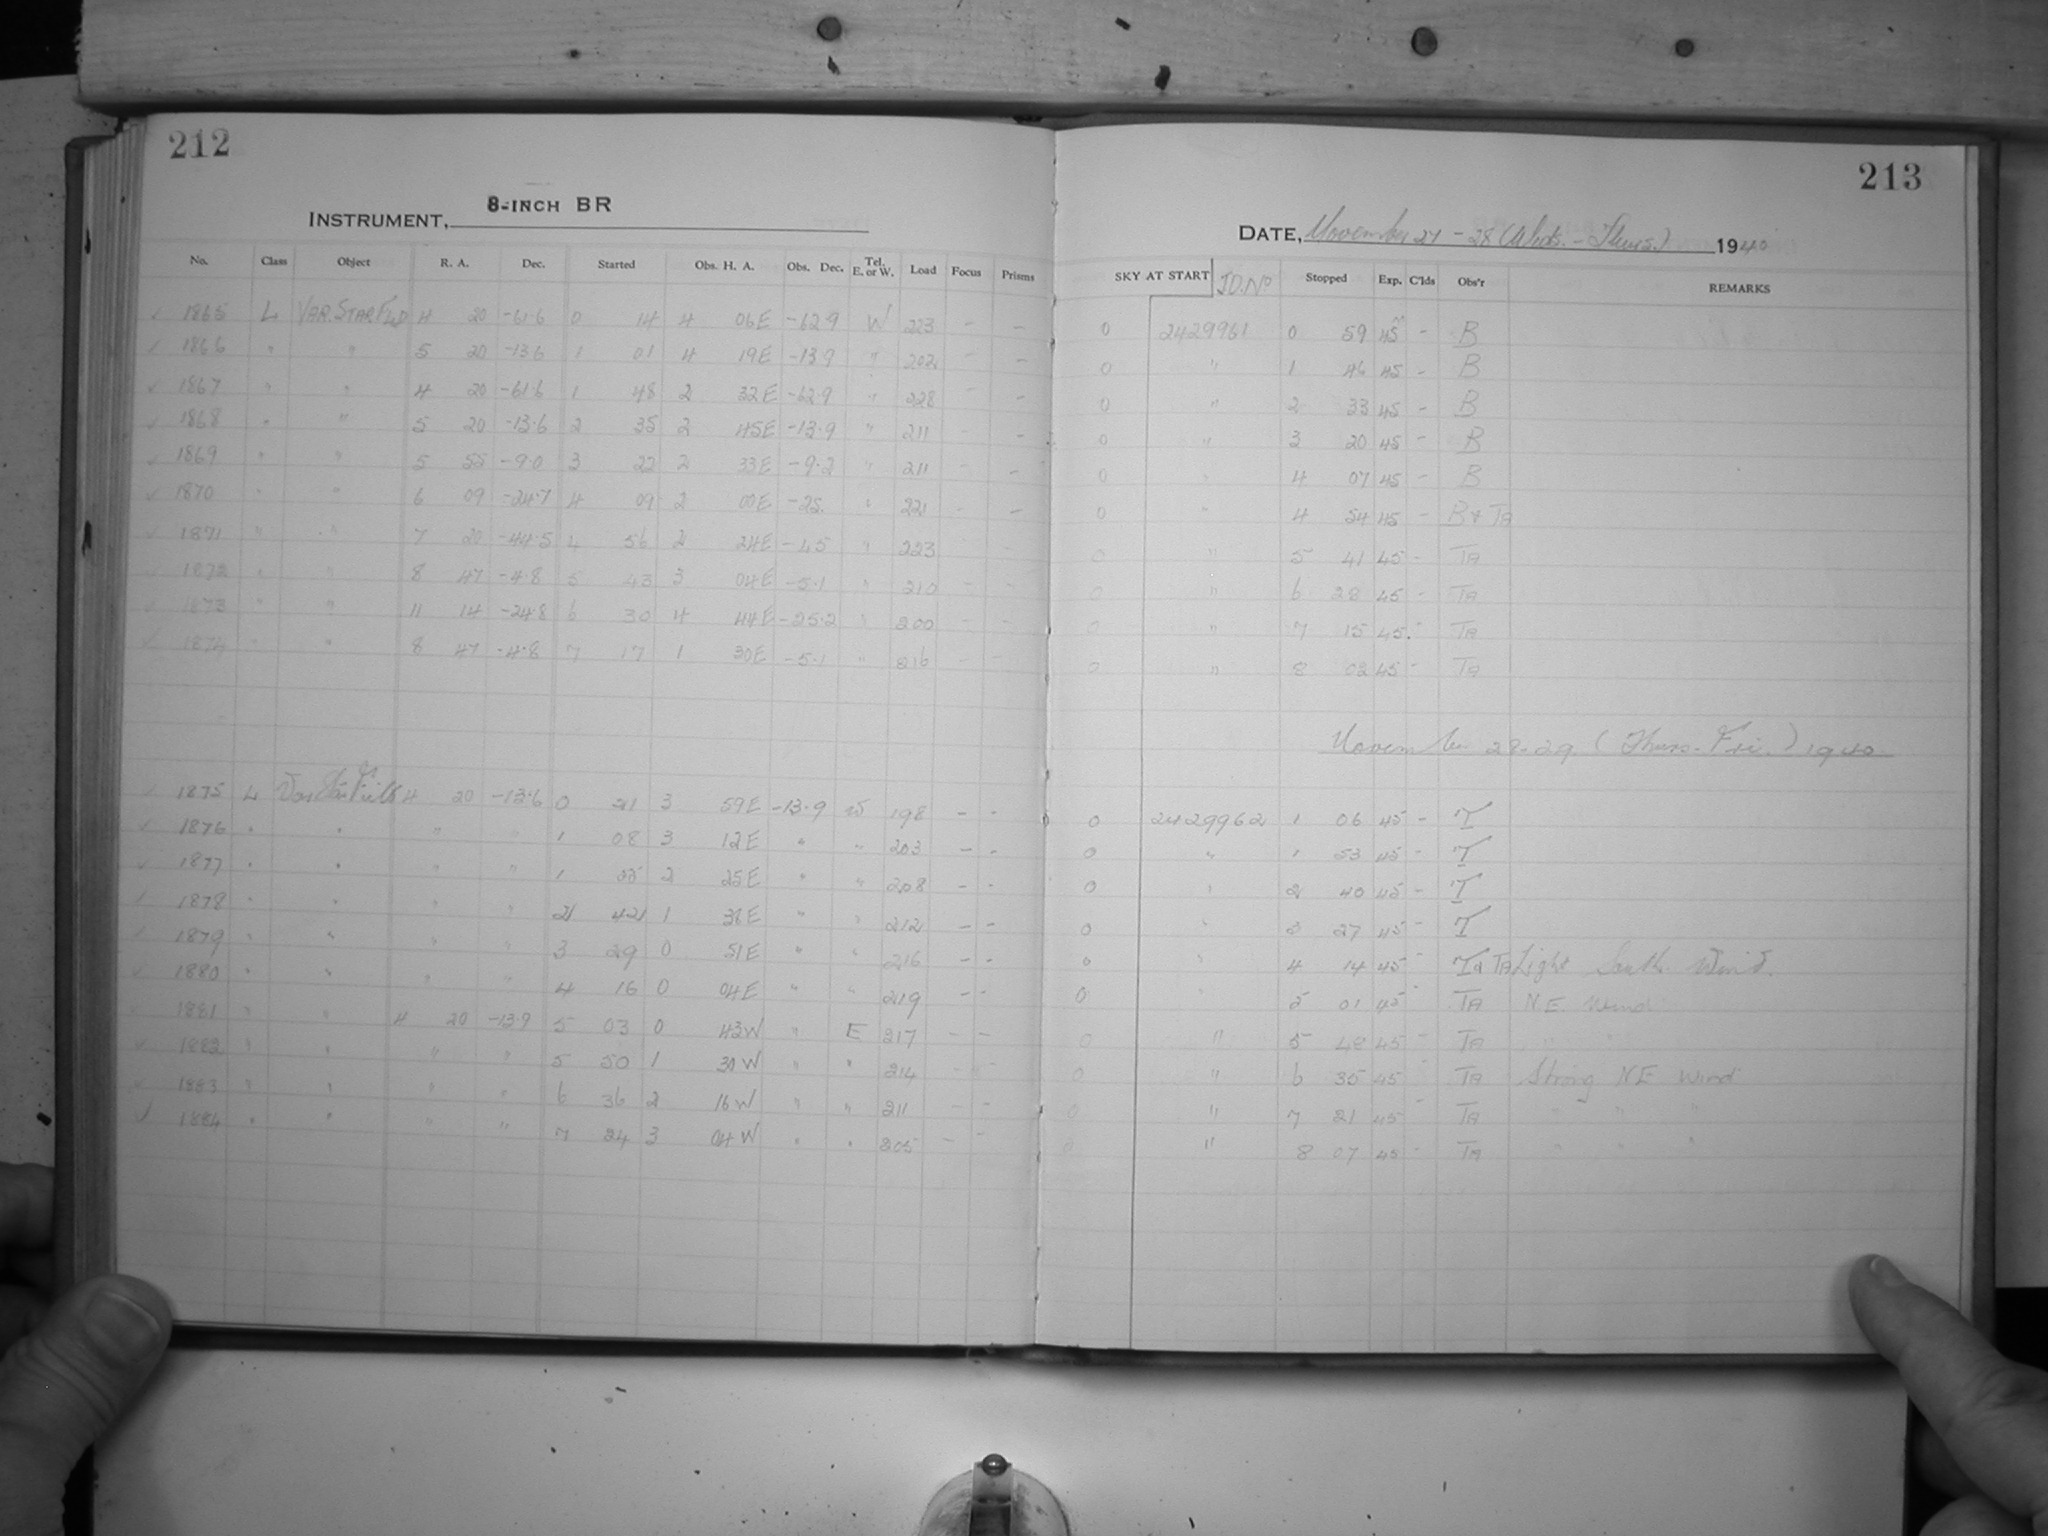 212
INSTRUMENT, 8-INCH BR
No. Class Object R. A. Dec. Started Obs. H. A. Obs. Dec. Tel. E. or W. Load Focus Prisms
1865 L VAR. STAR FLD 4 20 -61.6 0 14 4 06E -62.9 W 223 - -
1866 " " 5 20 -13.6 1 01 4 19E -13.9 " 202 - -
1867 " " 4 20 -61.6 1 48 2 32E -62.9 " 228 - -
1868 " " 5 20 -13.6 2 35 2 45E -13.9 " 211 - -
1869 " " 5 55 -9.0 3 22 2 33E -9.2 " 211 - -
1870 " " 6 09 -24.7 4 09 2 00E -25. " 221 - -
1871 " " 7 20 -44.5 4 56 2 24E -45 " 223 - -
1872 " " 8 47 -4.8 5 43 3 04E -5.1 " 210 - -
1873 " " 11 14 -24.8 6 30 4 44E -25.2 " 200 - -
1874 " " 8 47 -4.8 7 17 1 30E -5.1 " 216 - -
1875 L Var Star Field 4 20 -13.6 0 21 3 59E -13.9 W 198 - -
1876 " " " " 1 08 3 12E " " 203 - -
1877 " " " " 1 55 2 25E " " 208 - -
1878 " " " " 2 42 1 38E " " 212 - -
1879 " " " " 3 29 0 51E " " 216 - -
1880 " " " " 4 16 0 04E " " 219 - -
1881 " " 4 20 -13.9 5 03 0 43W " E 217 - -
1882 " " " " 5 50 1 30W " " 214 - -
1883 " " " " 6 36 2 16W " " 211 - -
1884 " " " " 7 24 3 04W " " 205 - -
213
DATE, November 27-28 (Weds.-Thurs.) 1940
SKY AT START JD. No Stopped Exp. C'lds Obs'r REMARKS
0 2429961 0 59 45m - B
0 " 1 46 45 - B
0 " 2 33 45 - B
0 " 3 20 45 - B
0 " 4 07 45 - B
0 " 4 54 45 - B & TA
0 " 5 41 45 - TA
0 " 6 28 45 - TA
0 " 7 15 45. - TA
0 " 8 02 45 - TA
November 28-29 (Thurs.-Fri.) 1940
0 2429962 1 06 45 - T
0 " 1 53 45 - T
0 " 2 40 45 - T
0 " 3 27 45 - T
0 " 4 14 45 - T & TA Light South Wind.
0 " 5 01 45 - TA N.E. Wind
0 " 5 48 45 - TA " "
0 " 6 35 45 - TA Strong NE wind
0 " 7 21 45 - TA " " "
0 " 8 07 45 - TA " " "